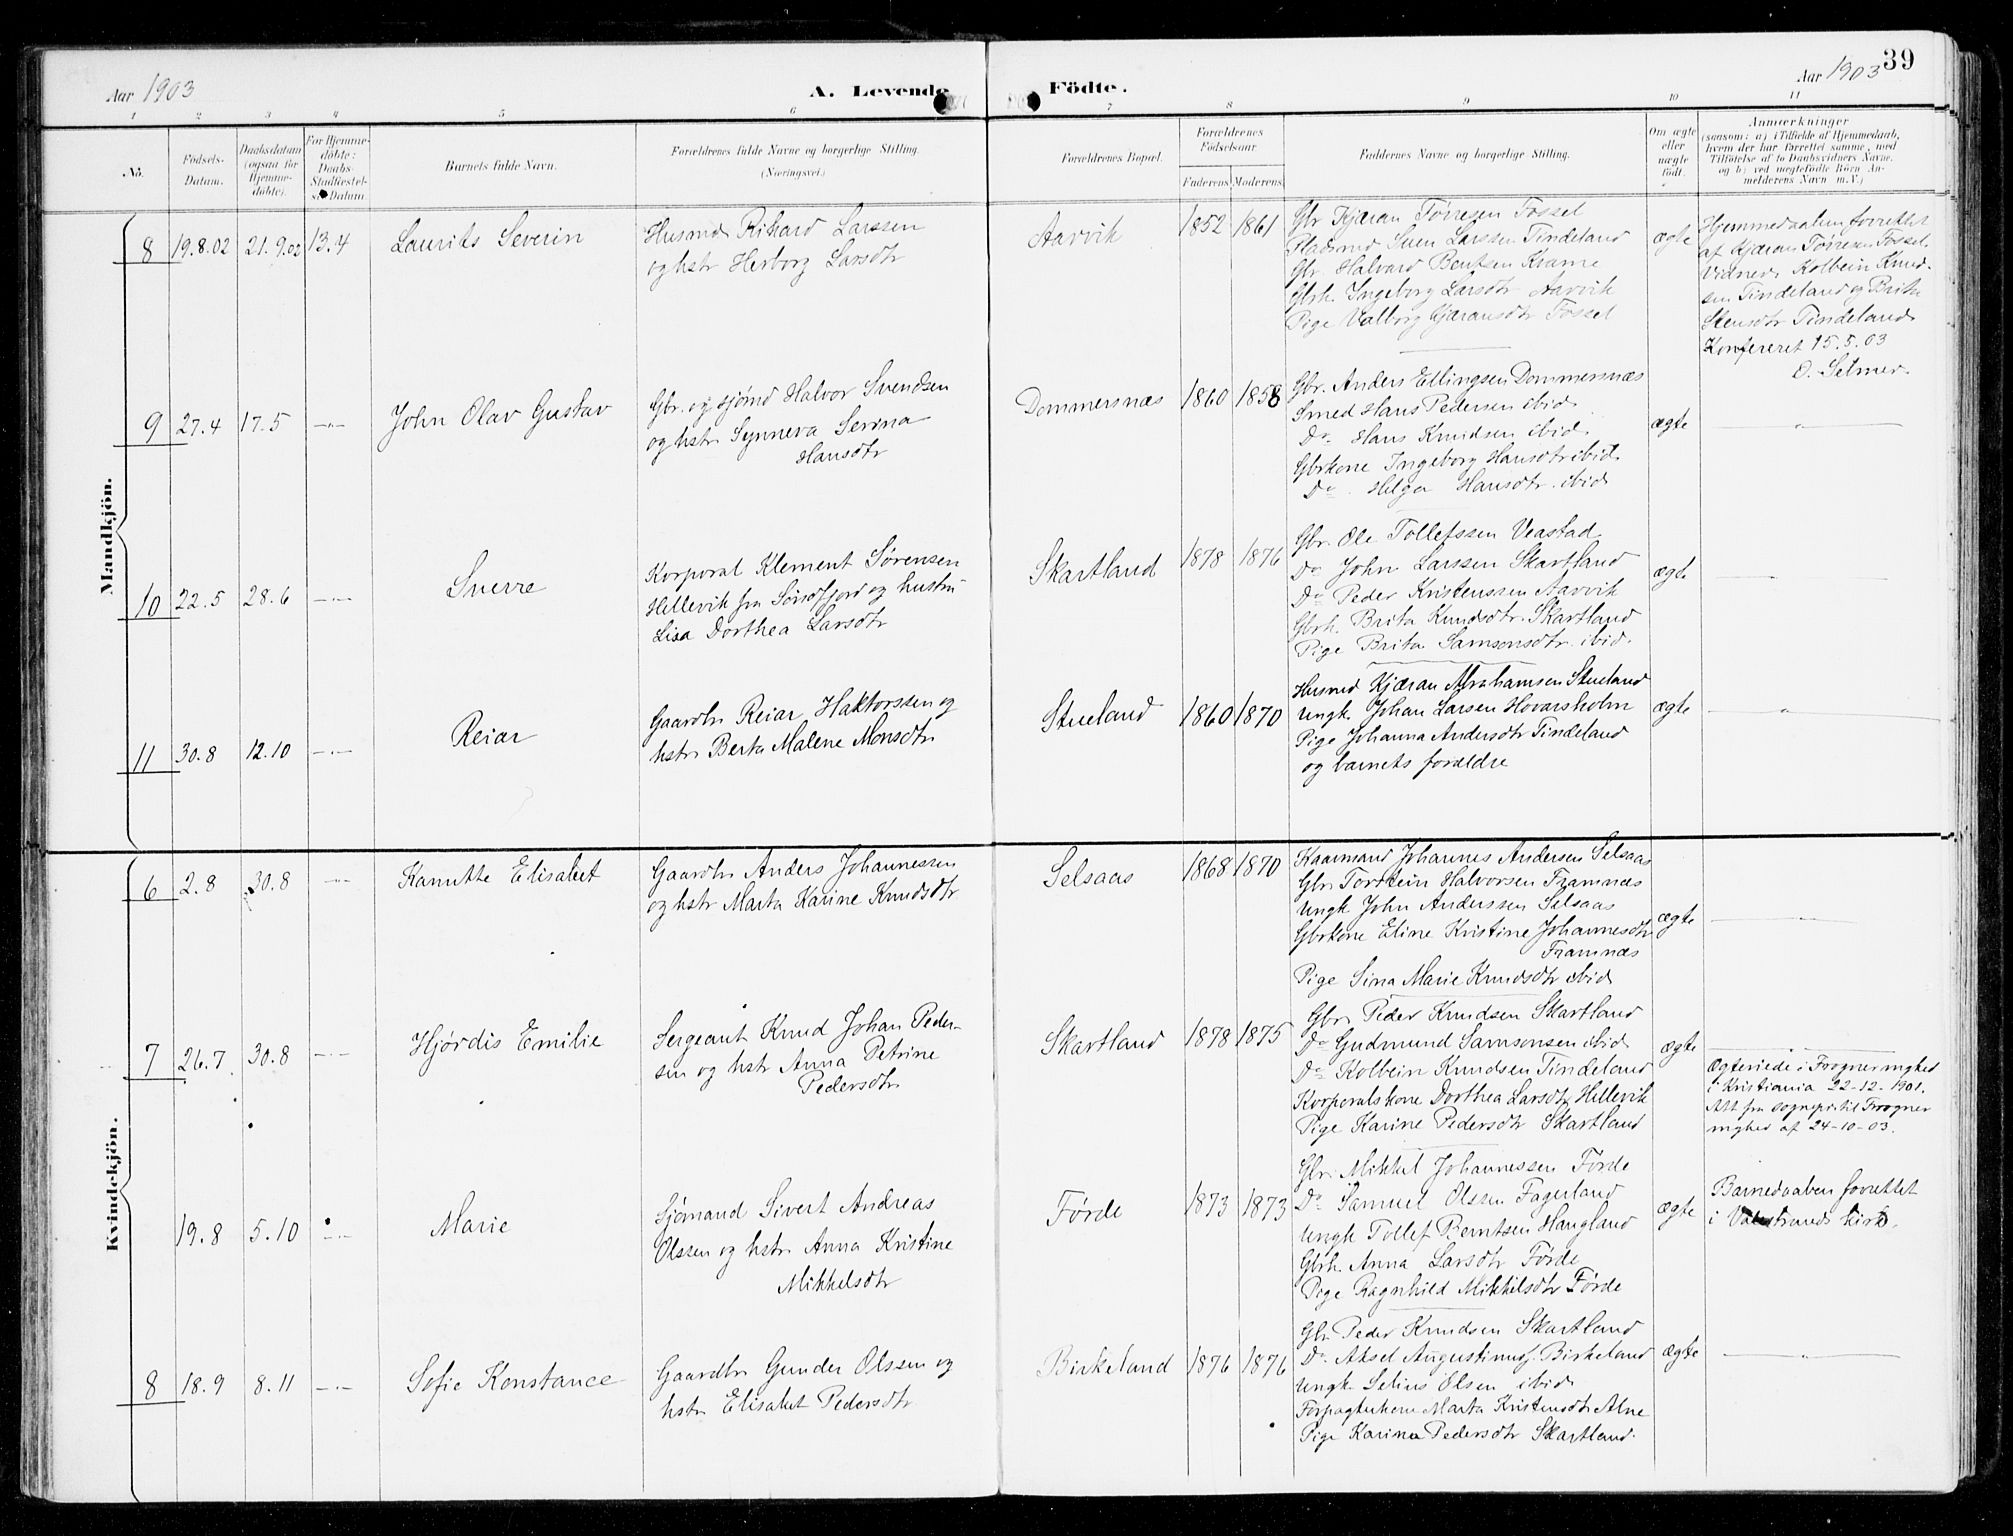 Aar 1903
A. Levende
Födte.
Aar 1903
39
1 2 3 4 5 6 7 8 9 10 11
No.
Födsels-
Datum.
Daabsdatum
(ogsaa for
Hjemme-
döbte).
For Hjemme-
döbte:
Daabs-
Barnets fulde Navn.
Forældrenes fulde Navne og borgerlige Stilling.
(Næringsvei.)
Forældrenes Bopæl.
Forældrenes
Födselsaar
Faderens Moderens
Faddernes Navne og borgerlige Stilling.
Om ægte
eller
uægte
födt.
Anmærkninger
(saasom: a) i Tilfælde af Hjemmedaab,
hvem der har forrettet samme, med
Tilföielse af to Daabsvidners Navne.
og b) ved uegtefödte Börn An-
melderens Navn m.V.)
Mandkjön.
8 19.8.02 21.9.02 13.4 Laurits Severin
Husmd Rikard Larssen
og hstr Herborg Larsdtr
Aarvik 1852 1861
Gbr Kjæran Tørresen Fossel
Pladsmd Sven Larssen Tindeland
Gbr. Halvard Bentsen Kvame
Gbrh. Ingeborg Larsdtr Aarvik
Pige Valborg Kjæransdtr Fossel
ægte
Hjemmedaaben forrettet
af Kjæran Tørresen Fossel.
Vidner Kolbein Knud-
sen Tindeland og Brita
Stensdtr Tindeland
Konfereret 15.5.03
O. Selmer.
9 27.4 17.5 -"- John Olav Gustav
Gbr. og sjømd Halvor Svendsen
og hstr Synneva Serina
Hansdtr
Dommersnæs 1860 1858
Gbr. Anders Ellingsen Dommersnæs
Smed Hans Pedersen ibid.
Do Hans Knudsen ibid.
Gbrkone Ingeborg Hansdtr ibid.
Do. Helga Hansdtr. ibid.
ægte -"-
10 22.5 28.6 -"- Sverre
Korporal Klement Sørensen
Hellevik fra Søndfjord og hustru
Lisa Dorthea Larsdtr
Skartland 1878 1876
Gbr. Ole Tollefssen Veastad
Do John Larssen Skartland
Do Peder Kristenssen Aarvik
Gbrh. Brita Knudsdtr. Skartland
Pige Brita Samsonsdtr. ibid.
ægte -"-
11 30.8 12.10 -"- Reiar
Gaardbr Reiar Haktorssen og
hstr Berta Malene Monsdtr
Stueland 1860 1870
Husmd Kjæran Abrahamsen Stueland
Ungk. Johan Larsen Hovarsholm
Pige Johanna Andersdtr Tindeland
og barnets forældre
ægte -"-
Kvindekjön.
6 2.8 30.8 -"- Kanutte Elisabet
Gaardbr Anders Johannessen
og hstr Marta Karine Knudsdtr
Selsaas 1868 1870
Kaarmand Johannes Andersen Selsaas
Gbr Torstein Halvorsen Framnæs
Ungk John Anderssen Selsaas
Gbrkone Eline Kristine Johannesdtr
Framnæs
Pige Sina Marie Knudsdtr ibid
ægte -"-
7 26.7 30.8 -"- Hjørdis Emilie
Sergeant Knud Johan Peder-
sen og hstr Anna Petrine
Pedersdtr
Skartland 1878 1875
Gbr Peder Knudsen Skartland
Do Gudmund Samsonsen ibid
Do Kolbein Knudsen Tindeland
Korporalskone Dorthea Larsdtr Hellevik
Pige Karine Pedersdtr Skartland
ægte
Ægteviede i Frogner mghed
i Kristiania 22-12-1901.
Att fra sognepr. til Frogner
mghed af 24-10-03.
19.8 5.10 -"- Marie
Sjømand Sivert Andreas
Olssen og hstr Anna Kristine
Mikkelsdtr
Førde 1873 1873
Gbr Mikkel Johannessen Førde
Do Samuel Olssen Fagerland
Ungk Tollef Berntsen Haugland
Gbrh. Anna Larsdtr Førde
Pige Ragnhild Mikkelsdtr Førde
ægte
Barnedaaben forrettet
i Valestrands kirke.
8 18.9 8.11 -"- Sofie Konstance
Gaardbr Gunder Olssen og
hstr Elisabet Pedersdtr
Birkeland 1876 1876
Gbr. Peder Knudsen Skartland
Do. Aksel Augustinus. Birkeland
Ungk Selius Olsen ibid
Forpagterkone Marta Kristensdtr Alne
Pige Karina Pedersdtr Skartland.
ægte -"-